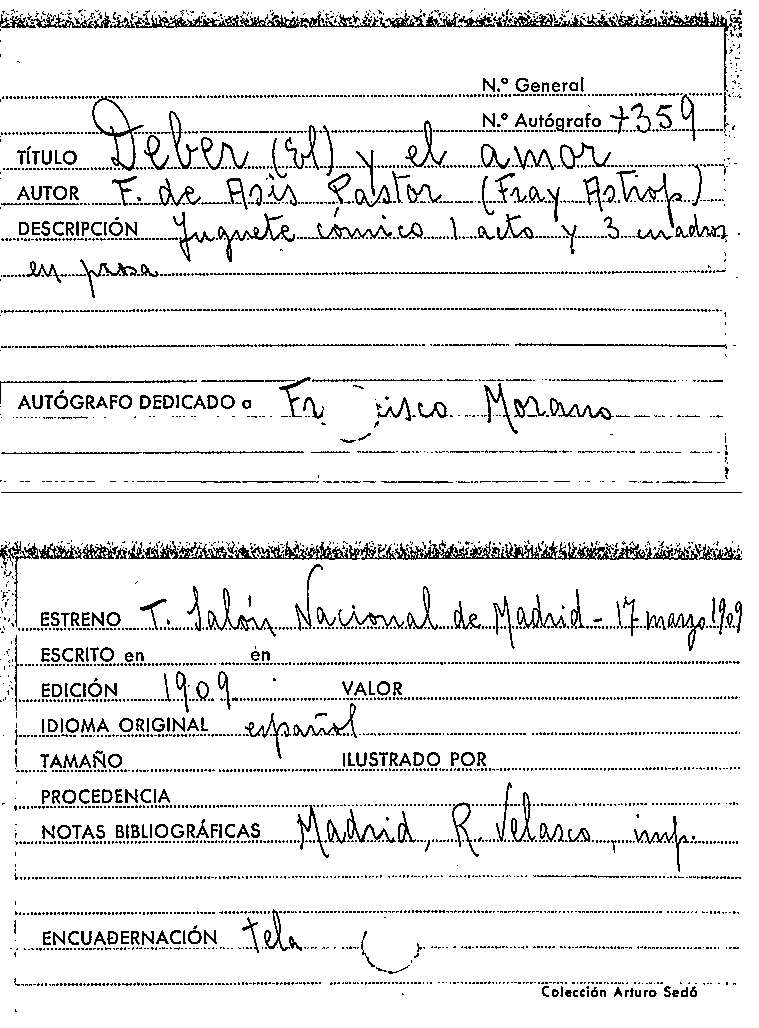 N.º General
N.º Autógrafo +359
TÍTULO Deber (El) y el amor
AUTOR F. de Asis Pastor (Fray Astiop)
DESCRIPCIÓN Juguete cómico 1 acto y 3 cuadros
en prosa
AUTÓGRAFO DEDICADO a Fr isco Morano
ESTRENO T. Salón Nacional de Madrid - 17 marzo 1909
ESCRITO en en
EDICIÓN 1909 VALOR
IDIOMA ORIGINAL español
TAMAÑO ILUSTRADO POR
PROCEDENCIA
NOTAS BIBLIOGRÁFICAS Madrid, R. Velasco, imp.
ENCUADERNACIÓN tela
Colección Arturo Sedó